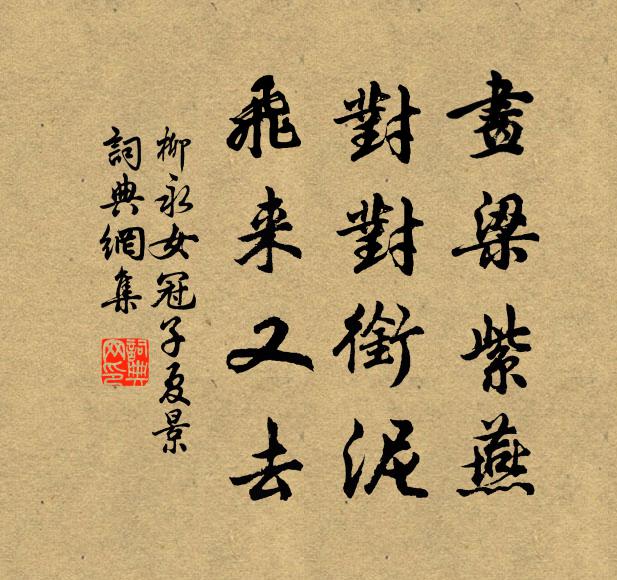 畫梁紫燕
對對銜泥
飛来又去
柳永女冠子夏景
詞典網集
詞典
网印